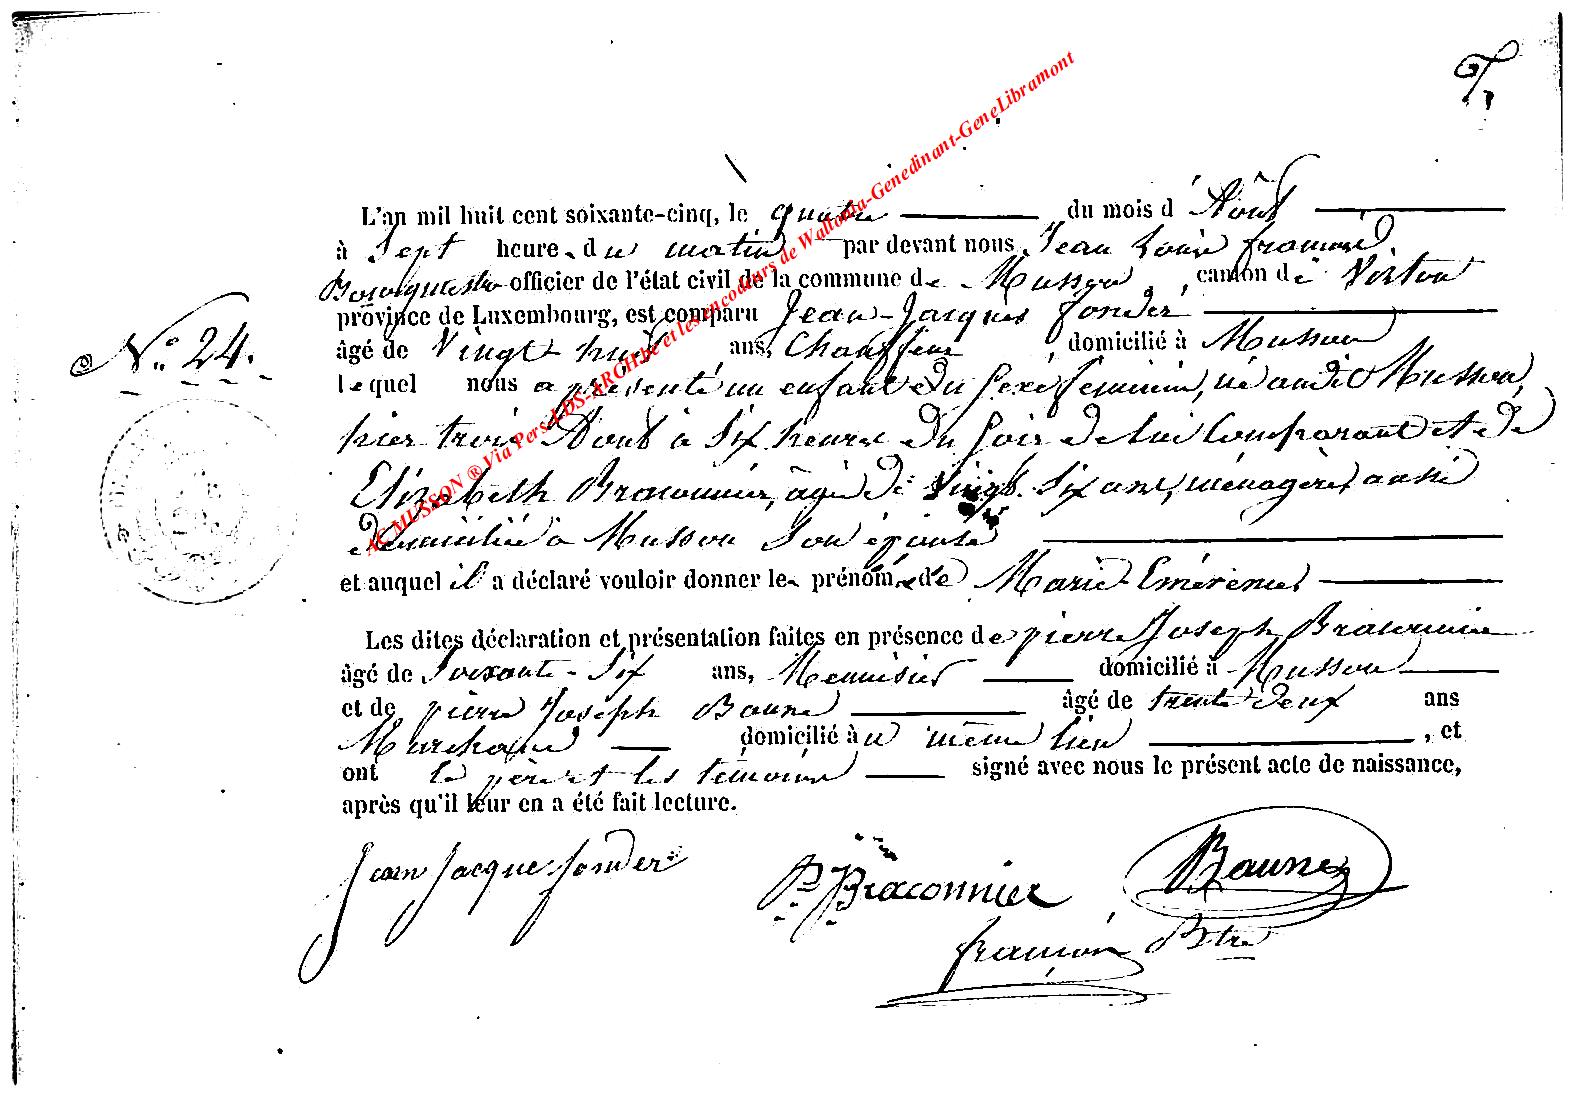 L'an mil huit cent soixante-cinq, le quatre du mois d'Août
à Sept heures du matin par devant nous Jean Louis
Bourguestre officier de l'état civil de la commune de Musson, canton de Virton
province de Luxembourg, est comparu Jean-Jacques fonder
N.o 24.
âgé de Vingt huit ans, Chauffeur domicilié à Musson
lequel nous a présenté un enfant du sexe feminin, né audit Musson,
hier trois Août à six heures du soir de lui Comparant et de
Elizabeth Braconnier, âgée de vingt Six ans, ménagère, aussi
domiciliée à Musson son épouse
et auquel il a déclaré vouloir donner les prénoms de Marie-Emérence
Les dites déclaration et présentation faites en présence de pierre Joseph Braconnier
âgé de Soixante-Six ans, Menuisier domicilié à Musson
et de pierre Joseph Baune âgé de trente deux ans
Marchand domicilié au même lieu, et
ont le père et les témoins signé avec nous le présent acte de naissance,
après qu'il leur en a été fait lecture.
Jean Jacque fonder
P. J. Braconnier
Baune
Btre
AC MUSSON ® Via Pers-LDS-ARCHIV et les encodeurs de Wallonia-Genedinant-GeneLibramont